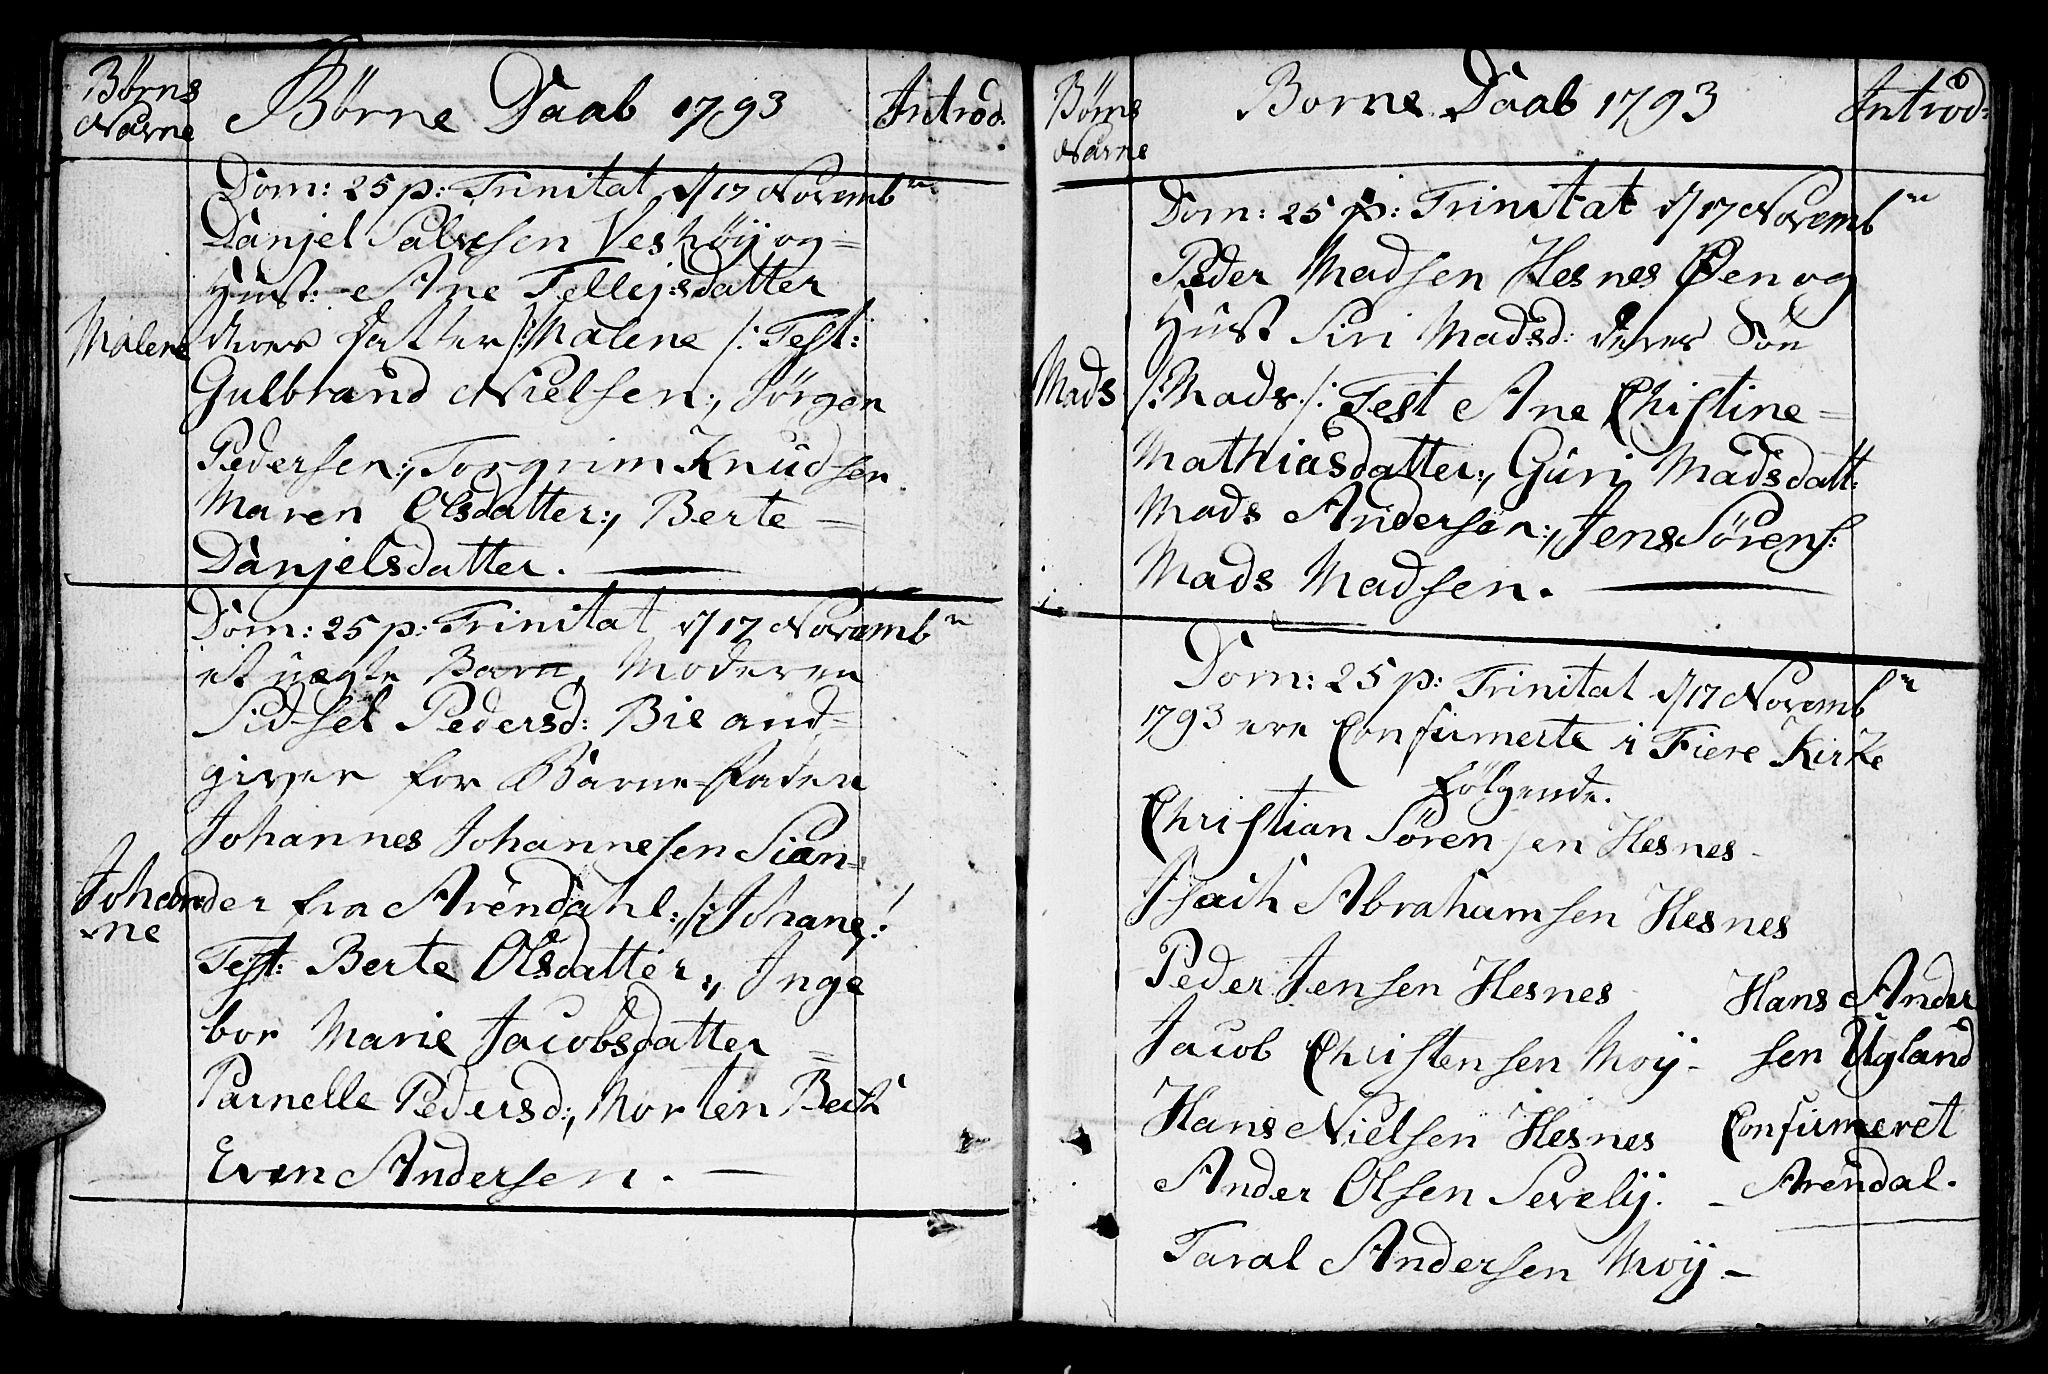 Børns
Navne
Børne Daab 1793
Introd.
Dom: 25 p: Trinitat d/17 Novemb
Danjel Salvesen Veshøÿ og =
Hust: Ane Tellejsdatter
Malene
deres datter /: Malene /: Test:
Gulbrand Nielsen:, Jörgen
Pedersen:, Torgrim Knudsen
Maren Olsdatter:, Berte =
Danjelsdatter.
Dom: 25 p: Trinitat d/17 Novemb
et uægte Barn, Moderen
Sidsel Pedersd: Bie and=
giver for Barne-Faderen
Johannes Johannesen
Johan=
ne
der fra Arendahl:, /: Johane:/
Test: Berte Olsdatter:, Inge
bor Marie Jacobsdatter =
Parnelle Pedersd:, Morten Beth
Even Andersen.
Børns
Navne
Borne Daab 1793
Introd:
6
Dom: 25 p: Trinitat d/17 Novemb
Peder Madsen Hesnes Øen og
Hust Siri Madsd: deres Sön
Mads
/: Mads /: Test Ane Christine =
Mathiasdatter:, Guri Madsdatt:
Mads Andersen:, Jens Sörens:
Mads Madsen.
Dom: 25 p: Trinitat d/17 Novemb
1793 ere Confirmerte i Fiere Kirke
følgende.
Christian Sörensen Hesnes -
Isach Abrahamsen Hesnes
Peder Jensen Hesnes
Jacob Christensen Moÿ -
Hans Nielsen Hesnes
Ander Olsen Sevelÿ.
Taral Andersen Moÿ -
Hans Ander
sen Ugland
Confirmeret
- Arendal.